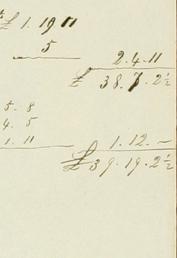 £ 1. 19 11
5
2. 4. 11
£ 38. 7. 2½
5. 8
4. 5
1. 11
1. 12. -
£ 39. 19. 2½